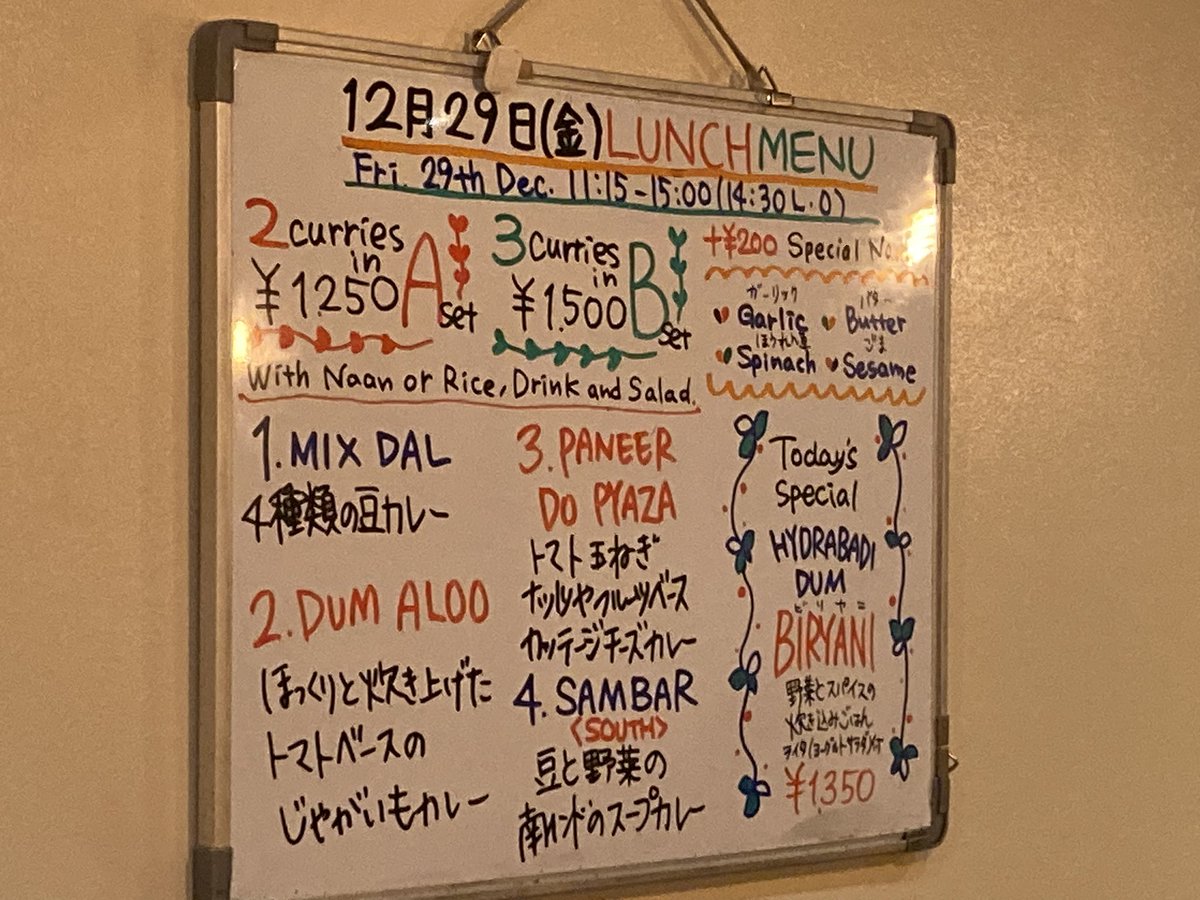 12月29日(金)LUNCH MENU
Fri. 29th Dec. 11:15-15:00 (14:30 L.O)
2 curries
in
¥1.250 A set
3 curries
in
¥1.500 B set
With Naan or Rice, Drink and Salad.
+¥200 Special
ガーリック
Garlic
バター
Butter
ほうれん草
Spinach
ごま
Sesame
1. MIX DAL
4種類の豆カレー
2. DUM ALOO
ほっくりと炊き上げた
トマトベースの
じゃがいもカレー
3. PANEER
DO PYAZA
トマト玉ねぎ
ナッツやフルーツベース
カッテージチーズカレー
4. SAMBAR
<SOUTH>
豆と野菜の
南インドのスープカレー
Today's
Special
HYDRABADI
DUM
ビリヤニ
BIRYANI
野菜とスパイスの
炊き込みごはん
ライタ(ヨーグルトサラダ)付
¥1.350